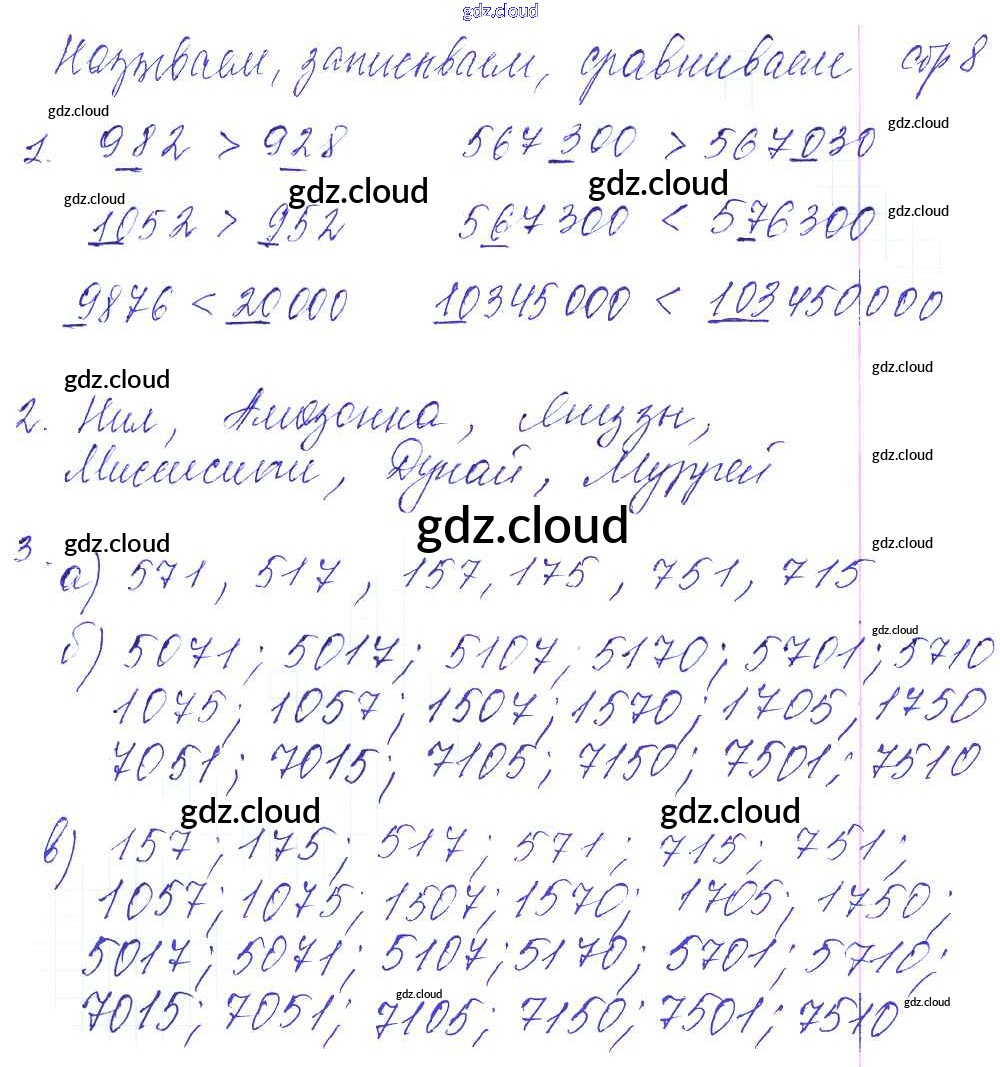 gdz.cloud
Называем, записываем, сравниваем стр 8
gdz.cloud gdz.cloud
1. 982 > 928 567 300 > 567 030
gdz.cloud gdz.cloud gdz.cloud gdz.cloud
1052 > 952 567 300 < 576 300
9876 < 20 000 10 345 000 < 103 450 000
gdz.cloud gdz.cloud
2. Нил, Амазонка, Янцзы,
gdz.cloud
Миссисипи, Дунай, Муррей
gdz.cloud
3. gdz.cloud gdz.cloud
а) 571, 517, 157, 175, 751, 715
gdz.cloud
б) 5071; 5017; 5107; 5170; 5701; 5710
1075; 1057; 1507; 1570; 1705, 1750
7051; 7015; 7105; 7150; 7501; 7510
gdz.cloud gdz.cloud
в) 157; 175; 517; 571; 715; 751;
1057; 1075; 1507; 1570; 1705; 1750;
5017; 5071; 5107; 5170; 5701; 5710;
gdz.cloud gdz.cloud
7015; 7051; 7105; 7150; 7501; 7510